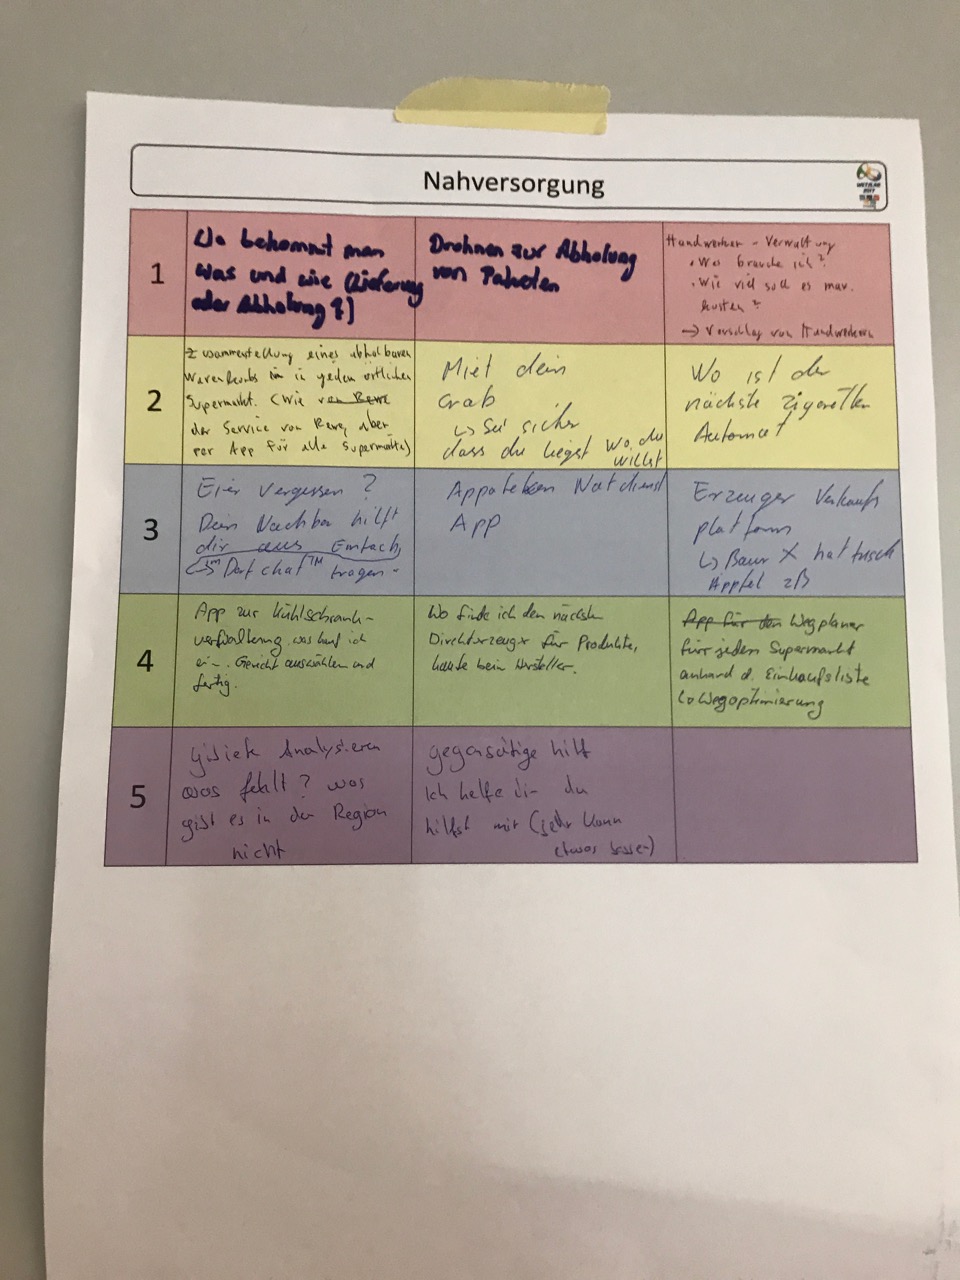 Nahversorgung
WETZLAR
2017
1
Wo bekommt man
was und wie (Lieferung
oder Abholung?)
Drohnen zur Abholung
von Paketen
Handwerker - Verwaltung
• Wo brauche ich?
• Wie viel soll es max.
kosten?
→ Vorschlag von Handwerkern
2
Zusammenstellung eines abholbaren
Warenkorbs in jedem örtlichen
Supermarkt. (Wie von Rewe
der Service von Rewe, aber
per App für alle Supermärkte)
Miet dein
Grab
↳ Sei sicher
dass du liegst wo du
willst
Wo ist der
nächste Zigaretten
Automat
3
Eier vergessen?
Dein Nachbar hilft
dir aus Einfach
↳ Dorfchat™ fragen
Appoteken Notdienst
App
Erzeuger Verkaufs
platform
↳ Baur X hat frisch
Äppfel zB
4
App zur Kühlschrank-
verwaltung, was kauf ich
ein. Gericht auswählen und
fertig.
Wo finde ich den nächsten
Direkterzeuger für Produkte,
kaufe beim Hersteller.
App für den Wegplaner
für jeden Supermarkt
anhand d. Einkaufsliste
↳ Wegoptimierung
5
Analysieren
was fehlt? was
gibt es in der Region
nicht
gegensätige hilf
Ich helfe dir du
hilfst mir (jeder kann
etwas besser)